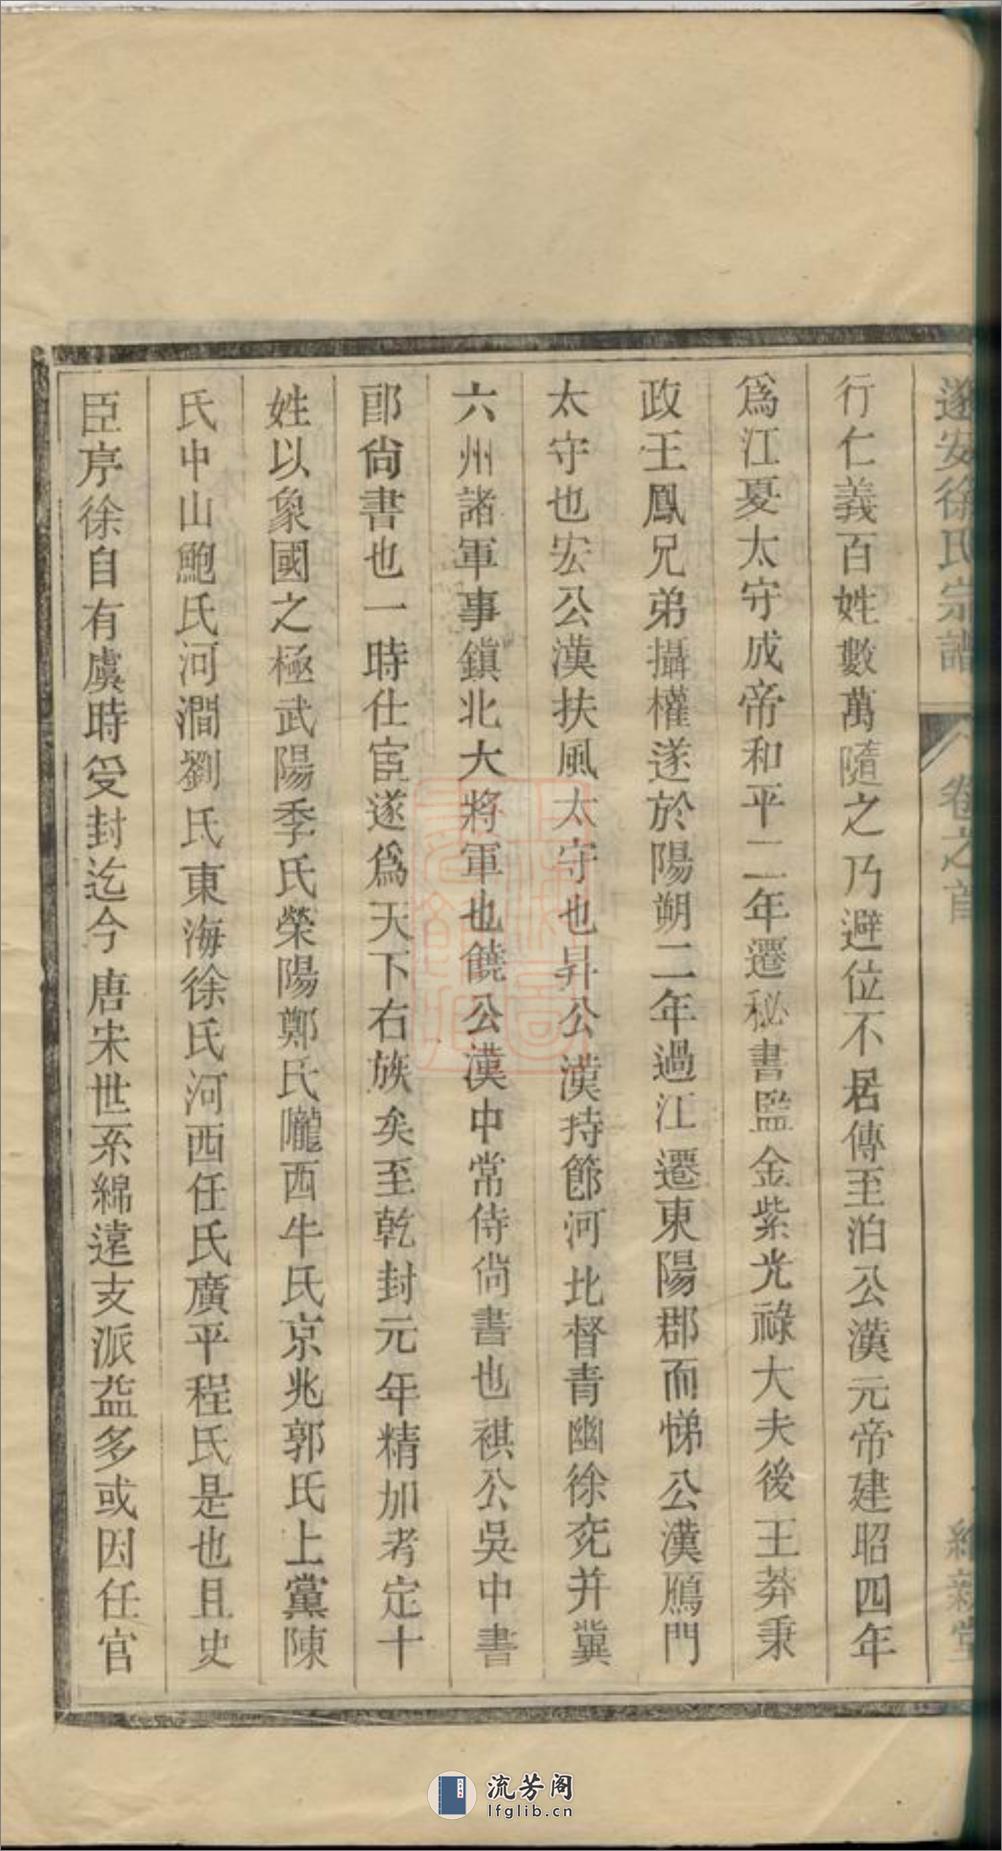 遂安徐氏宗譜 卷之首
行仁義百姓數萬隨之乃避位不居傳至泊公漢元帝建昭四年
爲江夏太守成帝和平二年遷秘書監金紫光祿大夫後王莽秉
政王鳳兄弟攝權遂於陽朔二年過江遷東陽郡而悌公漢鴈門
太守也宏公漢扶風太守也昇公漢持節河北督青幽徐兖并冀
六州諸軍事鎮北大將軍也饒公漢中常侍尙書也祺公吳中書
郎尙書也一時仕宦遂爲天下右族矣至乾封元年精加考定十
姓以象國之極武陽季氏榮陽鄭氏隴西牛氏京兆郭氏上黨陳
氏中山鮑氏河澗劉氏東海徐氏河西任氏廣平程氏是也且史
臣序徐自有虞時受封迄今唐宋世系綿遠支派益多或因任官
流芳阁
lfglib.cn